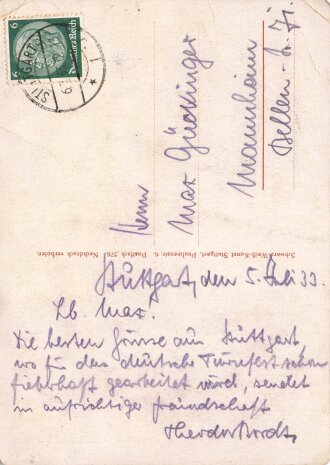 6 Deutsches Reich 6
STUTTGART
Herrn
Max
Mannheim
Schwarz-Weiß-Kunst Stuttgart, Paulinenstr. 6, Postfach 576. Nachdruck verboten
Stuttgart, den 5. Juli 33.
Lb. Max.
Die besten Grüsse aus Stuttgart,
wo für das deutsche Turnfest schon
fieberhaft gearbeitet wird, sendet
in aufrichtiger Freundschaft
Theodor